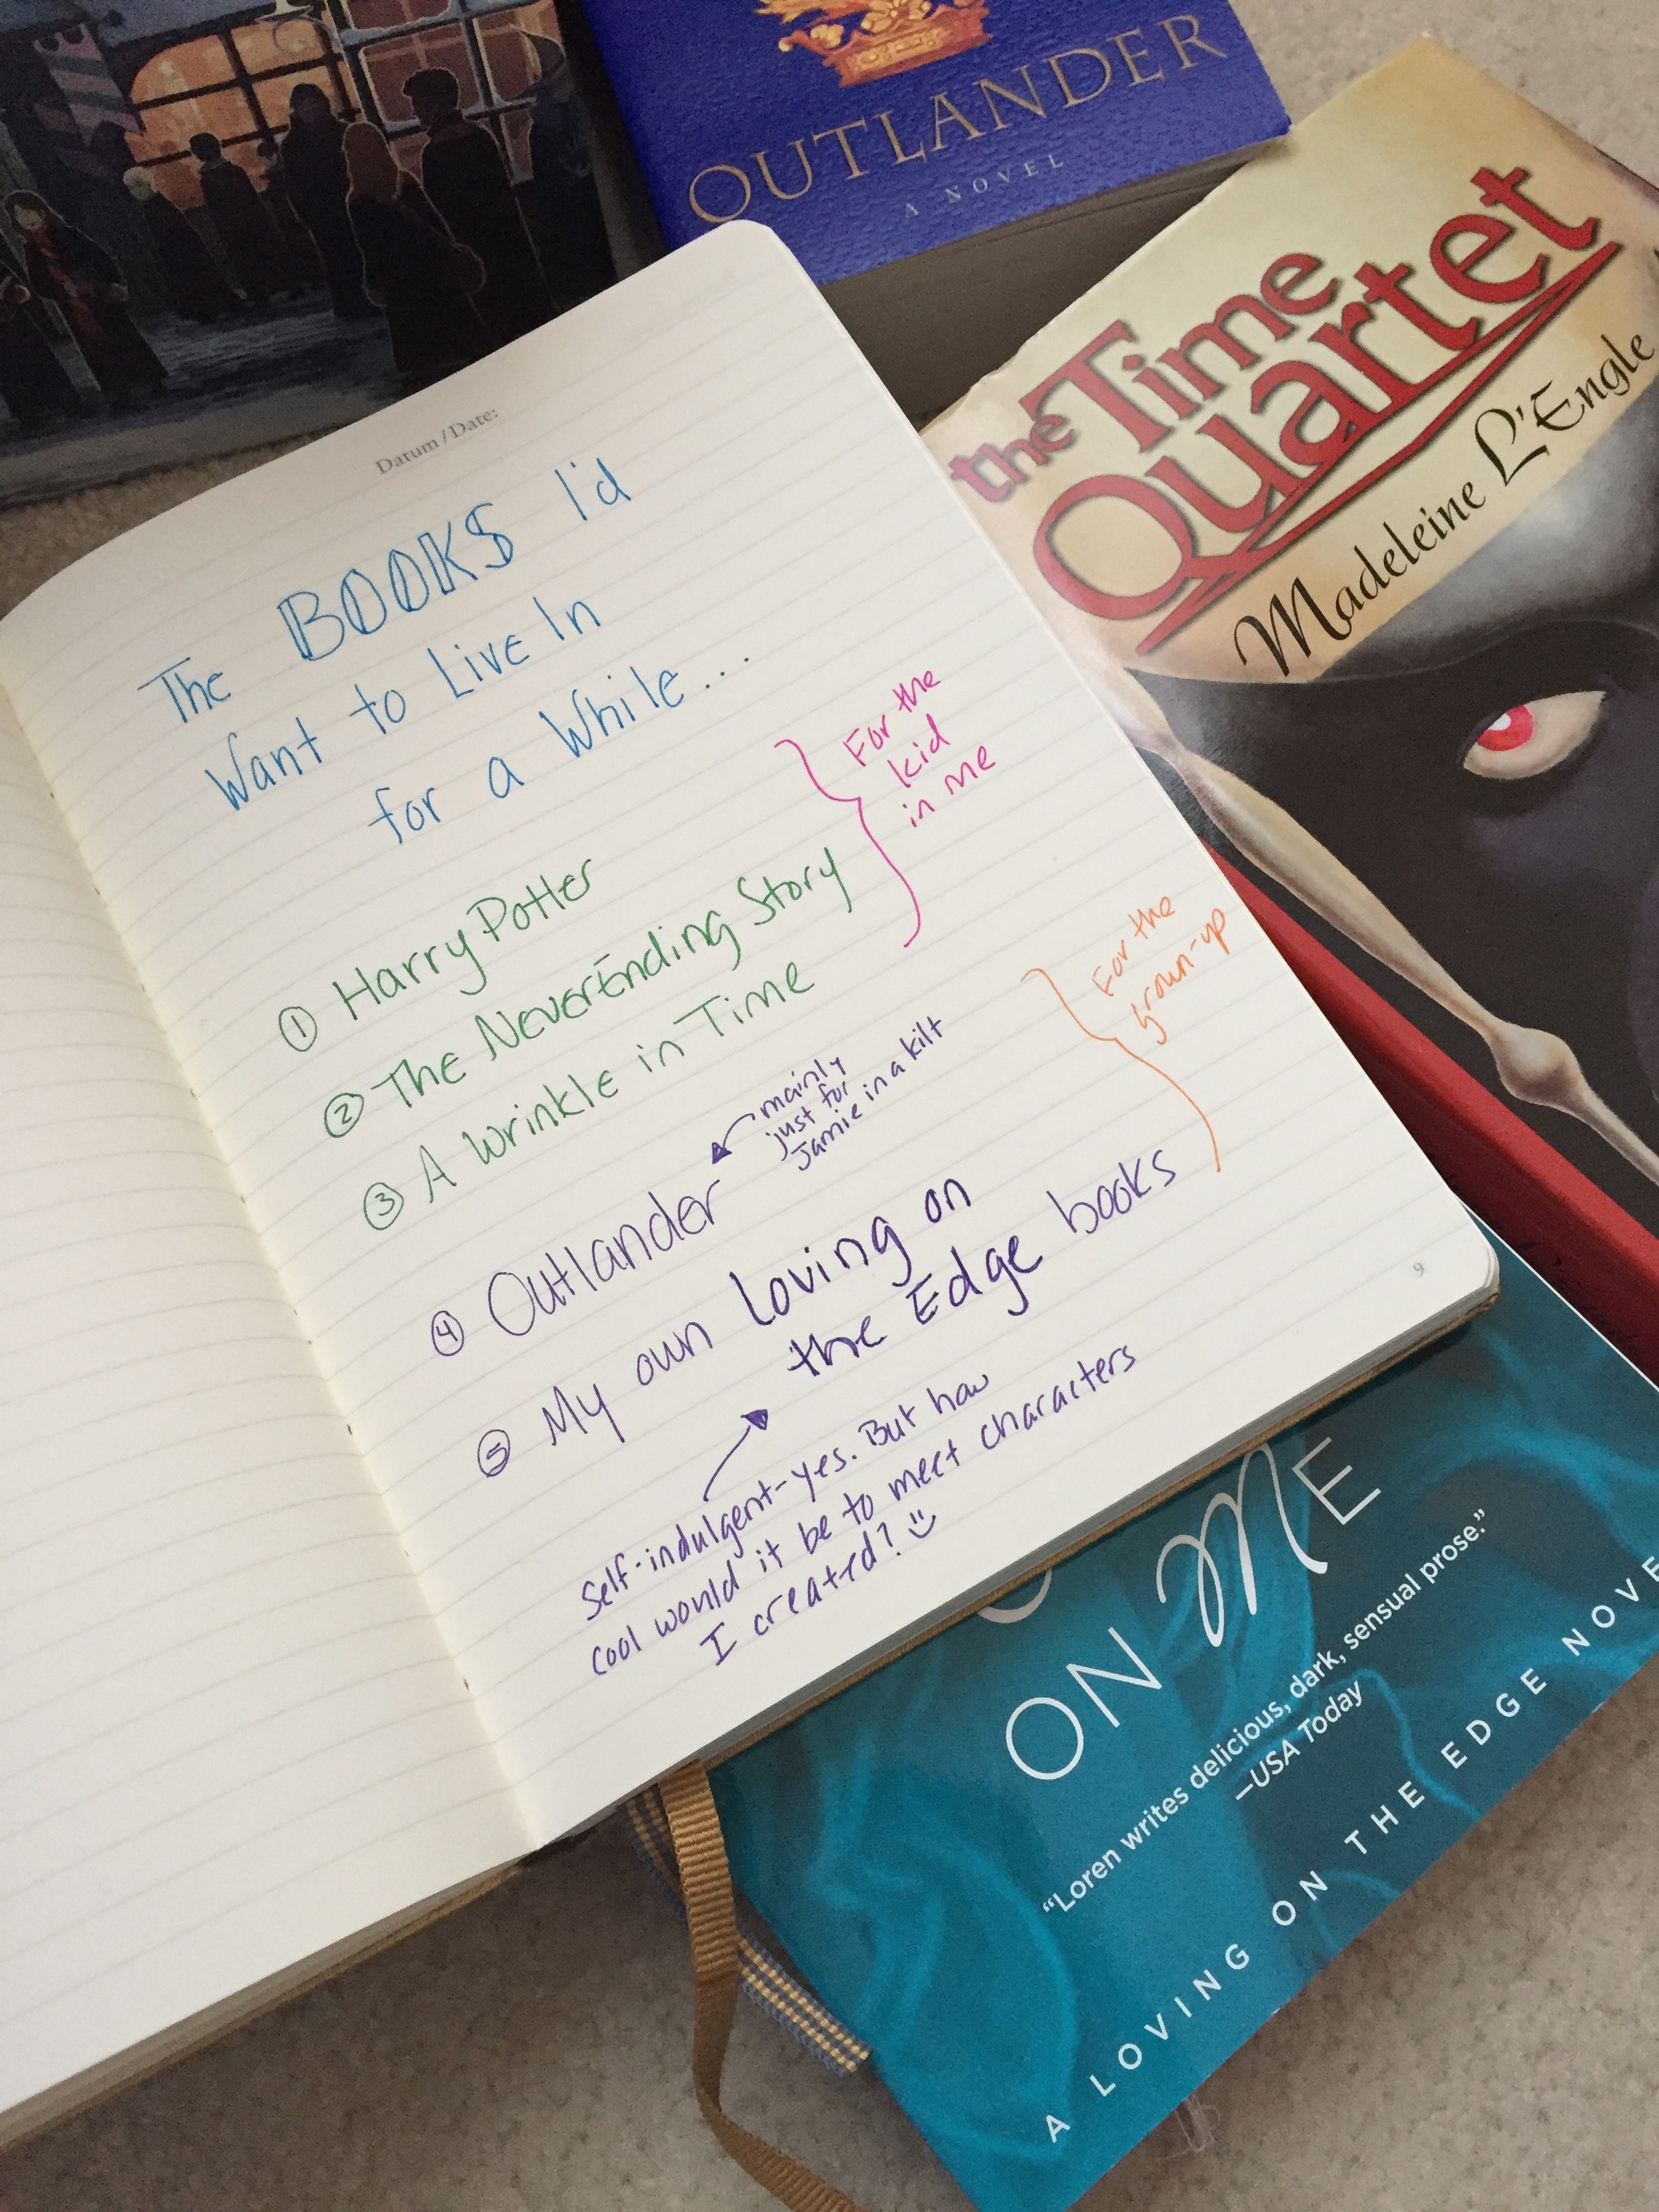 OUTLANDER
A NOVEL
the Time
Quartet
Madeleine L'Engle
Datum / Date:
The BOOKS I'd
Want to Live In
for a While...
① Harry Potter
② The NeverEnding Story
③ A Wrinkle in Time
For the
kid
in me
mainly
just for
Jamie in a kilt
④ Outlander
⑤ My own Loving on
the Edge books
For the
grown-up
Self-indulgent-yes. But how
cool would it be to meet characters
I created?
9
ON ME
“Loren writes delicious, dark, sensual prose.”
—USA Today
A LOVING ON THE EDGE NOVE